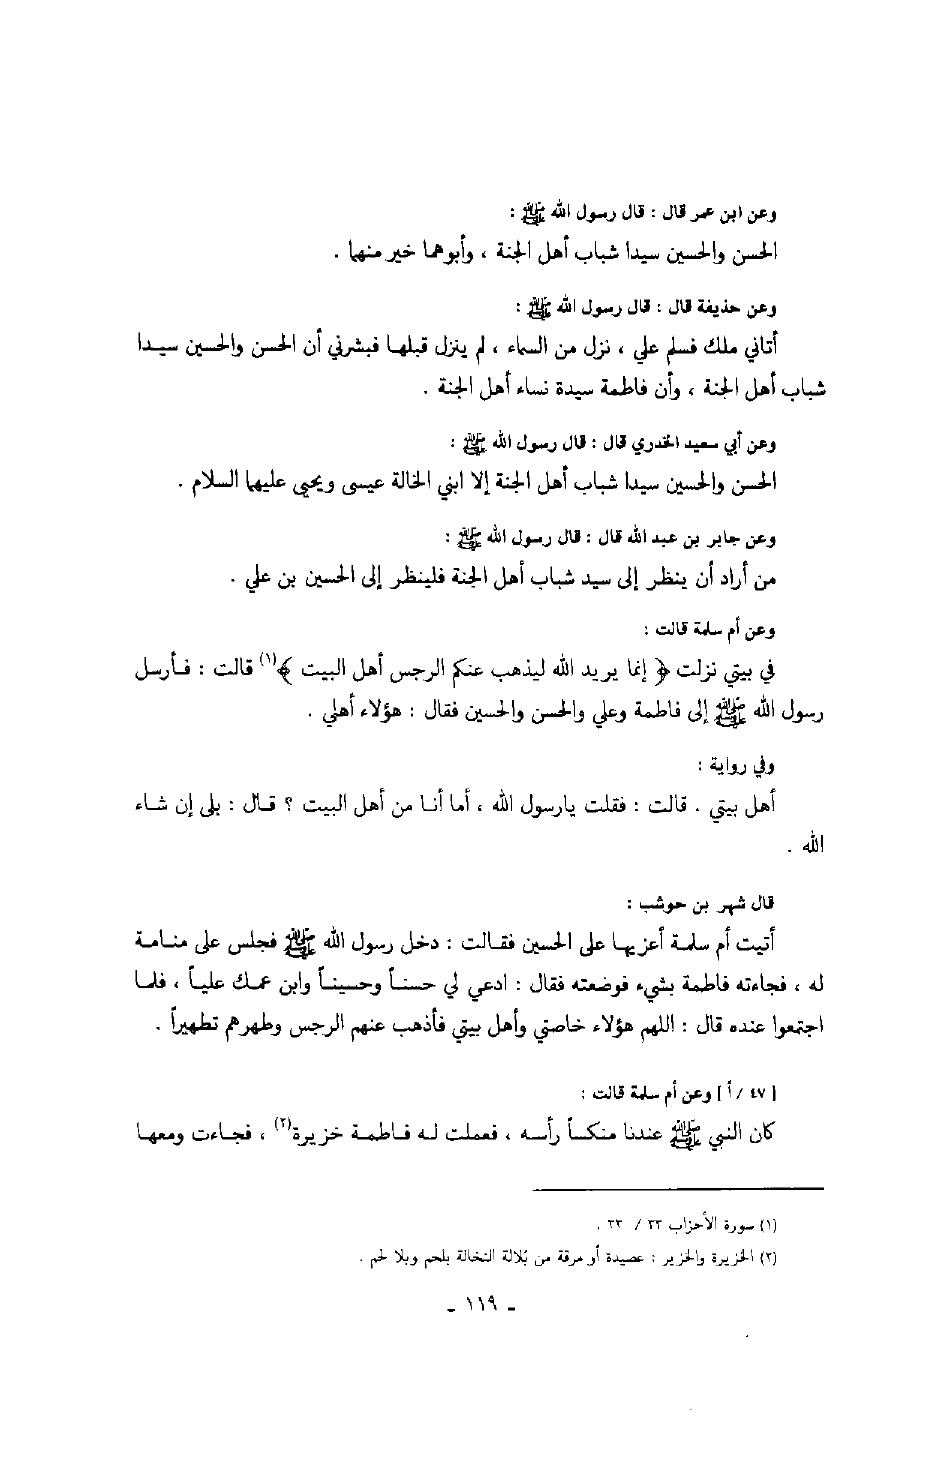 وعن ابن عمر قال : قال رسول الله ﷺ :
الحسن والحسين سيدا شباب أهل الجنة ، وأبوهما خير منهما .
وعن حذيفة قال : قال رسول الله ﷺ :
أتاني ملك فسلم علي ، نزل من السماء ، لم ينزل قبلها فبشرني أن الحسن والحسين سيدا
شباب أهل الجنة ، وأن فاطمة سيدة نساء أهل الجنة .
وعن أبي سعيد الخدري قال : قال رسول الله ﷺ :
الحسن والحسين سيدا شباب أهل الجنة إلا ابني الخالة عيسى ويحيى عليهما السلام .
وعن جابر بن عبد الله قال : قال رسول الله ﷺ :
من أراد أن ينظر إلى سيد شباب أهل الجنة فلينظر إلى الحسين بن علي .
وعن أم سلمة قالت :
في بيتي نزلت ﴿ إنما يريد الله ليذهب عنكم الرجس أهل البيت ﴾(١) قالت : فأرسل
رسول الله ﷺ إلى فاطمة وعلي والحسن والحسين فقال : هؤلاء أهلي .
وفي رواية :
أهل بيتي . قالت : فقلت يارسول الله ، أما أنا من أهل البيت ؟ قال : بلى إن شاء
الله .
قال شهر بن حوشب :
أتيت أم سلمة أعزيها على الحسين فقالت : دخل رسول الله ﷺ فجلس على منامة
له ، فجاءته فاطمة بشيء فوضعته فقال : ادعي لي حسناً وحسيناً وابن عمك علياً ، فلما
اجتمعوا عنده قال : اللهم هؤلاء خاصتي وأهل بيتي فأذهب عنهم الرجس وطهرهم تطهيراً .
[ ٤٧ / أ ] وعن أم سلمة قالت :
كان النبي ﷺ عندنا منكساً رأسه ، فعملت له فاطمة خزيرة(٢) ، فجاءت ومعها
(١) سورة الأحزاب ٣٣ / ٣٣ .
(٢) الخزيرة والخزير : عصيدة أو مرقة من بُلالة النخالة بلحم وبلا لحم .
ـ ١١٩ ـ